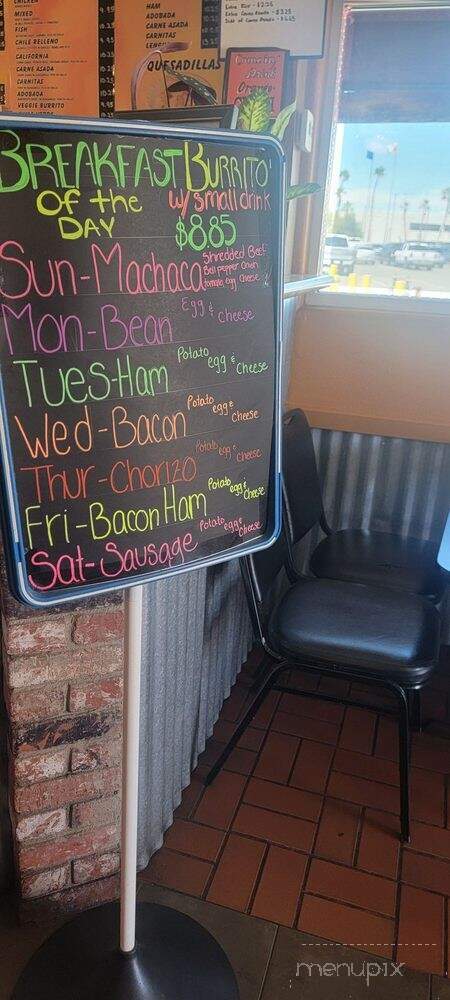 CHICKEN
MIXED
FISH
CHILE RELLENO
CALIFORNIA
CARNE ASADA
CARNITAS
ADOBADA
VEGGIE BURRITO
HAM
ADOBADA
CARNE ASADA
CARNITAS
QUESADILLAS
BREAKFAST BURRITO
OF the DAY
w/ small drink
$8.85
Sun-Machaca Shredded Beef
Bell pepper onion
tomato, egg cheese
Mon-Bean Egg & Cheese
Tues-Ham Potato egg & Cheese
Wed-Bacon Potato egg & Cheese
Thur-Chorizo Potato egg & Cheese
Fri-Bacon Ham Potato egg & Cheese
Sat-Sausage Potato egg & Cheese
menupix